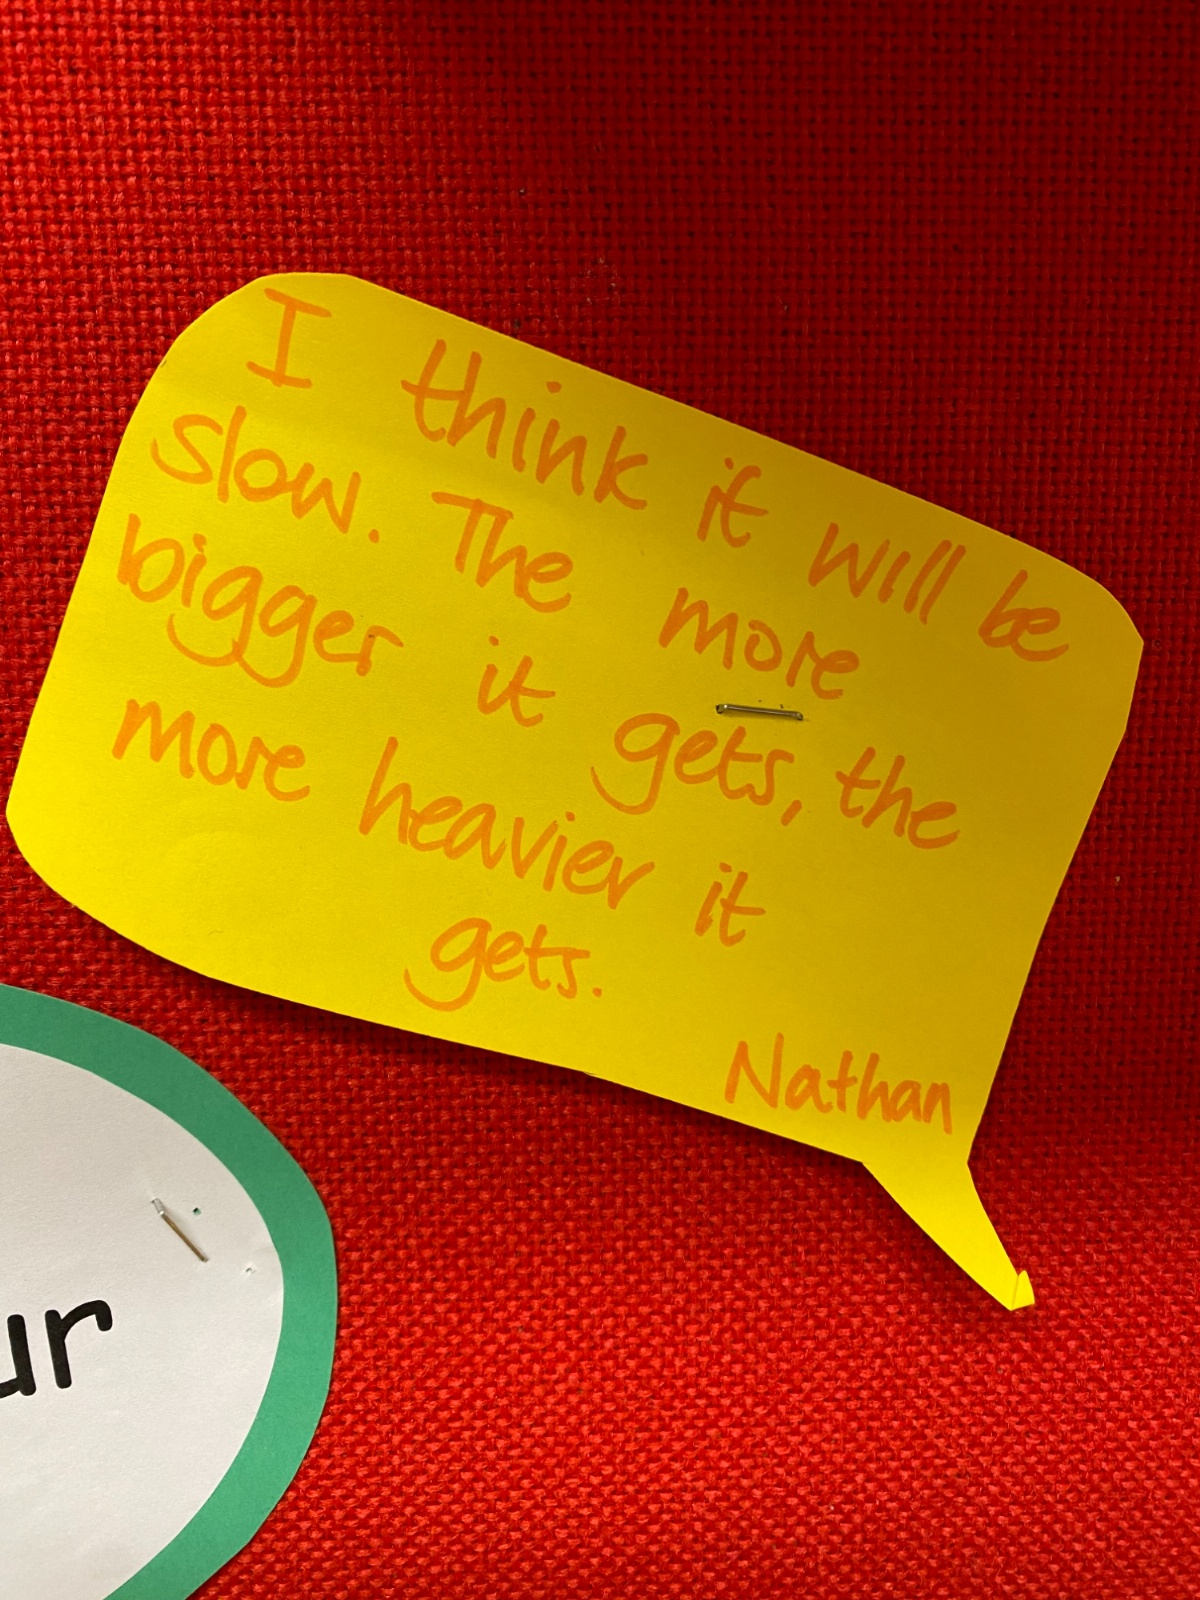 I think it will be
slow. The more
bigger it gets, the
more heavier it
gets.
Nathan
ur